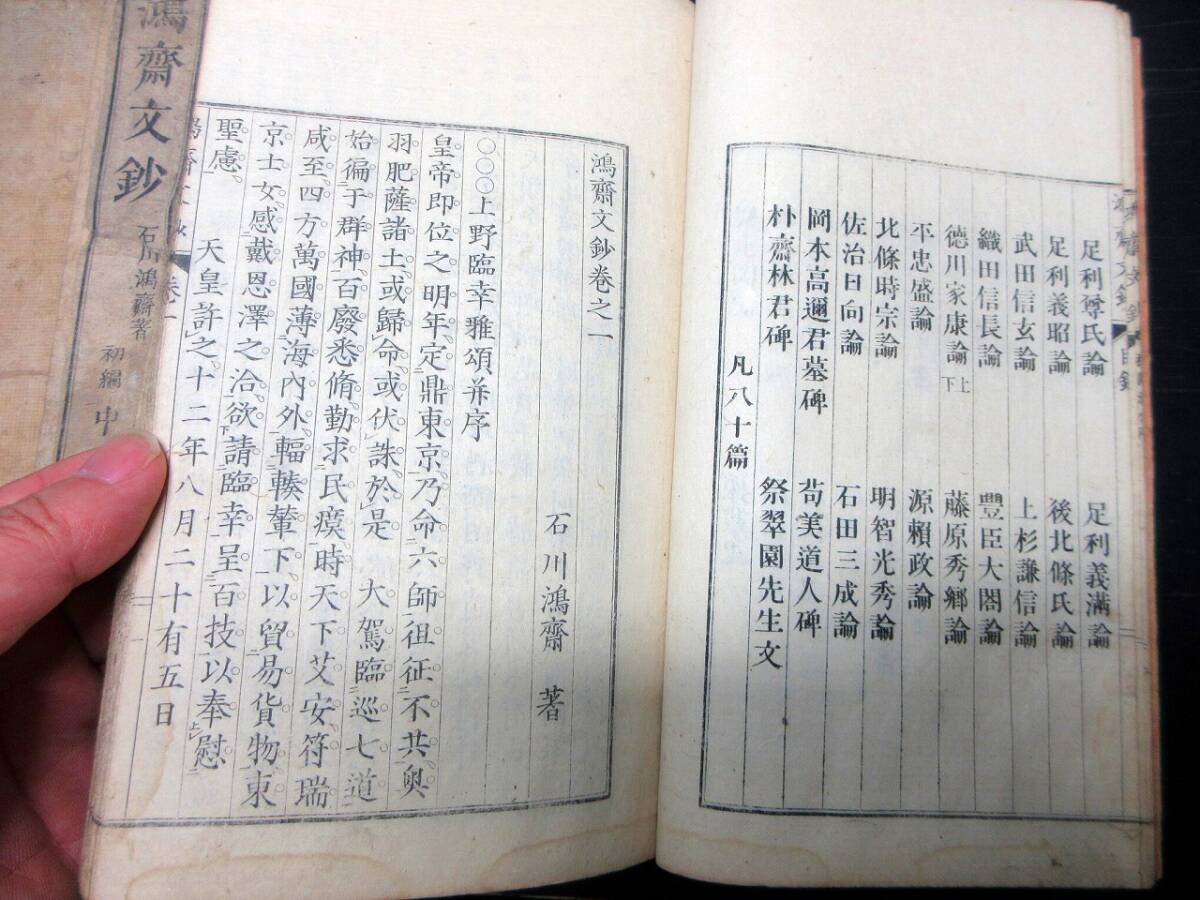 足利尊氏論 足利義滿論
足利義昭論 後北條氏論
武田信玄論 上杉謙信論
織田信長論 豐臣大閤論
德川家康論上下 藤原秀鄉論
平忠盛論 源賴政論
北條時宗論 明智光秀論
佐治日向論 石田三成論
岡本高邇君墓碑 苟美道人碑
朴齋林君碑 祭翠園先生文
凡八十篇
鴻齋文鈔卷之一
石川鴻齋 著
〇〇〇上野臨幸雅頌并序
皇帝即位之明年定鼎東京乃命六師徂征不共奧
羽肥薩諸土或歸命或伏誅於是 大駕臨巡七道
始徧于群神百廢悉脩勤求民瘼時天下艾安符瑞
咸至四方萬國薄海內外輻輳輦下以貿易貨物東
京士女感戴恩澤之洽欲請臨幸呈百技以奉慰
聖慮 天皇許之十二年八月二十有五日
鴻齋文鈔 石川鴻齋著 初編 中